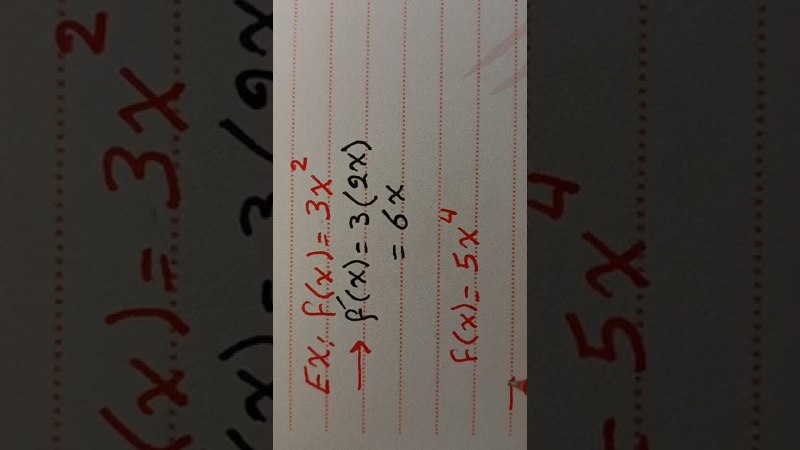 Ex, f(x) = 3x²
→ f'(x) = 3(2x)
= 6x
f(x) = 5x⁴